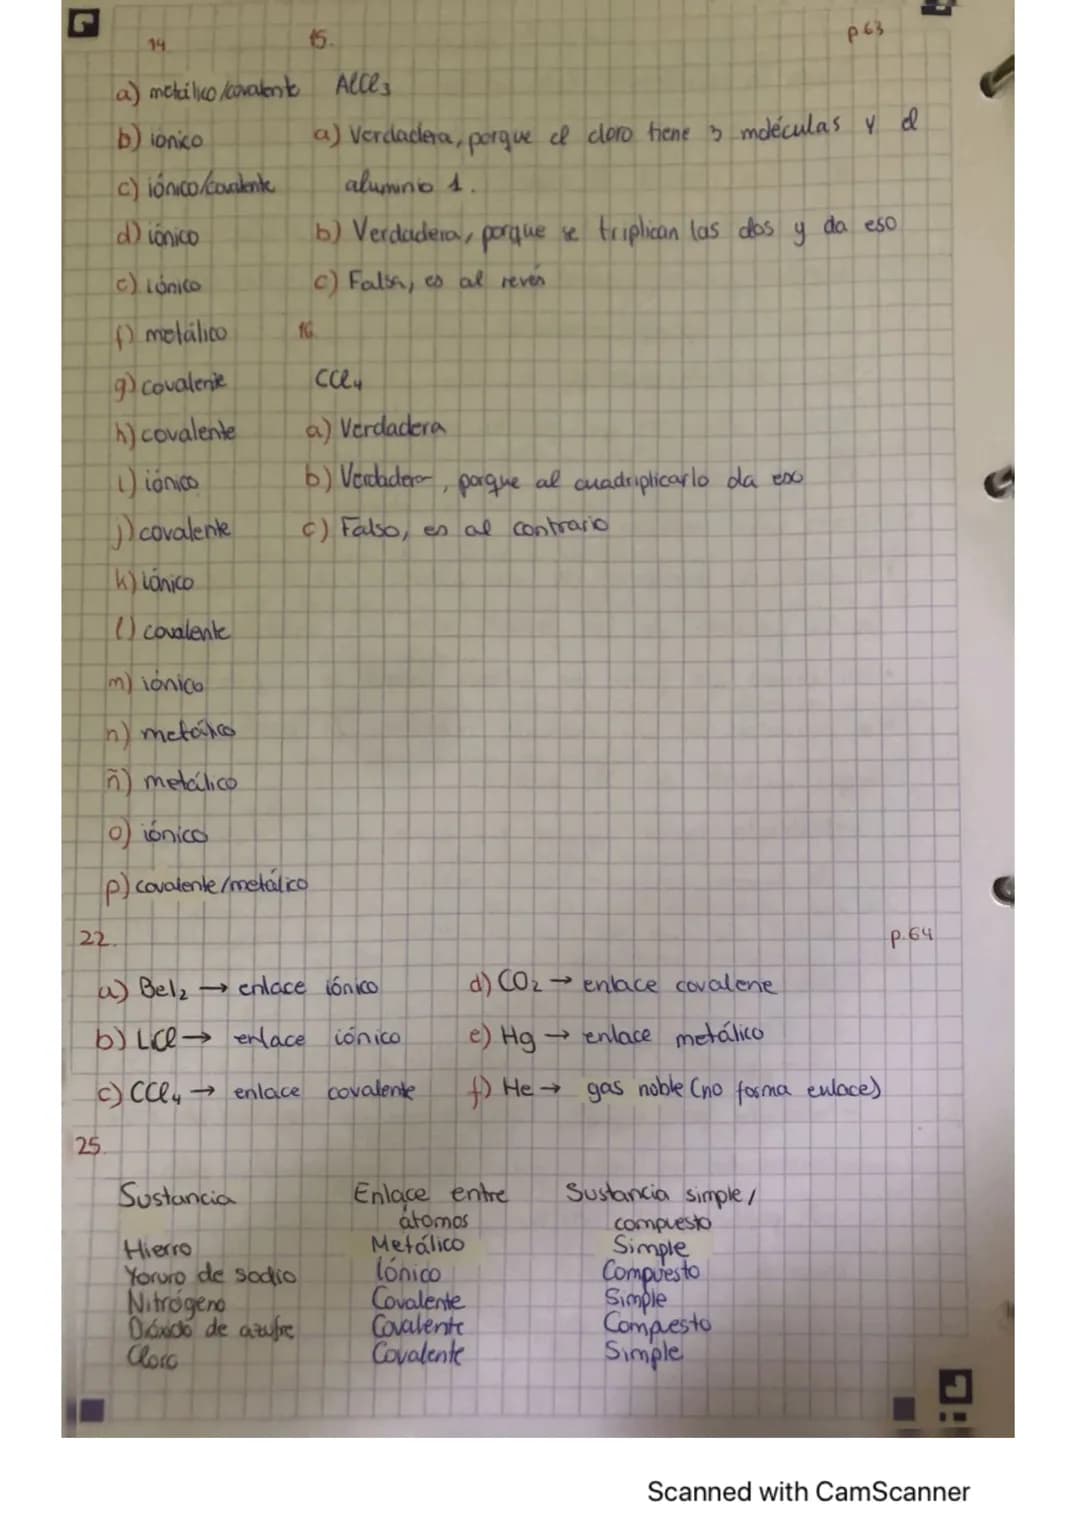 14. 15. p.63
a) metálico/covalente AlCl₃
b) iónico a) Verdadera, porque el cloro tiene 3 moléculas y el
c) iónico/covalente aluminio 1.
d) iónico b) Verdadera, porque se triplican las dos y da eso
e) iónico c) Falsa, es al revés
f) metálico 16
g) covalente CCl₄
h) covalente a) Verdadera
i) iónico b) Verdadera, porque al cuadriplicarlo da eso
j) covalente c) Falso, es al contrario
k) iónico
l) covalente
m) iónico
n) metálico
ñ) metálico
o) iónico
p) covalente/metálico
22. p.64
a) BeI₂ → enlace iónico d) CO₂ → enlace covalene
b) LiCl → enlace iónico e) Hg → enlace metálico
c) CCl₄ → enlace covalente f) He → gas noble (no forma enlace)
25.
Sustancia Enlace entre Sustancia simple/
átomos compuesto
Hierro Metálico Simple
Yoruro de sodio Iónico Compuesto
Nitrógeno Covalente Simple
Dióxido de azufre Covalente Compuesto
Cloro Covalente Simple
Scanned with CamScanner